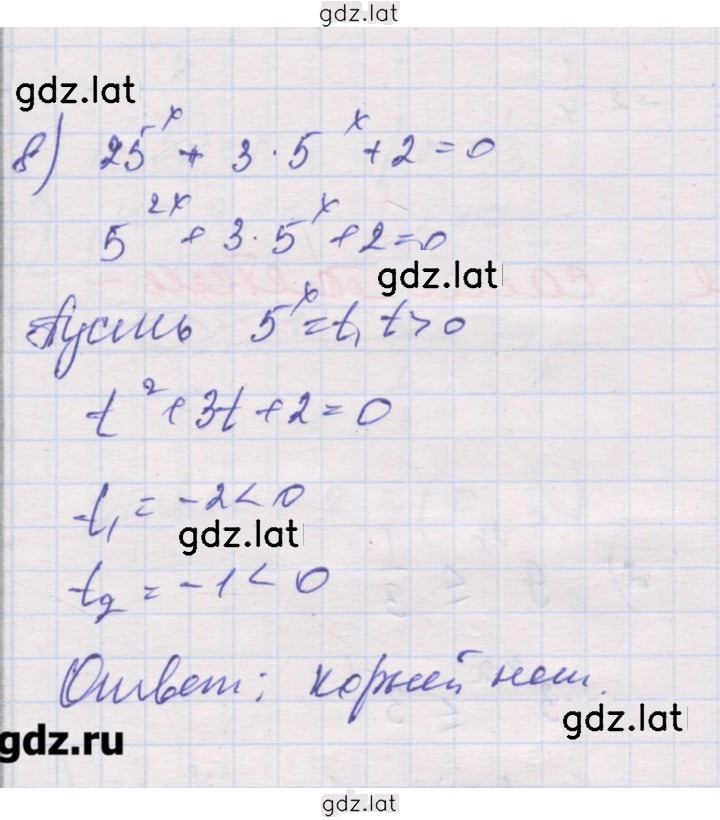 gdz.lat
gdz.lat
8) 25^x + 3 · 5^x + 2 = 0
5^2x + 3 · 5^x + 2 = 0
gdz.lat
Пусть 5^x = t, t > 0
t^2 + 3t + 2 = 0
t₁ = -2 < 0
gdz.lat
t₂ = -1 < 0
Ответ: корней нет.
gdz.lat
gdz.ru
gdz.lat